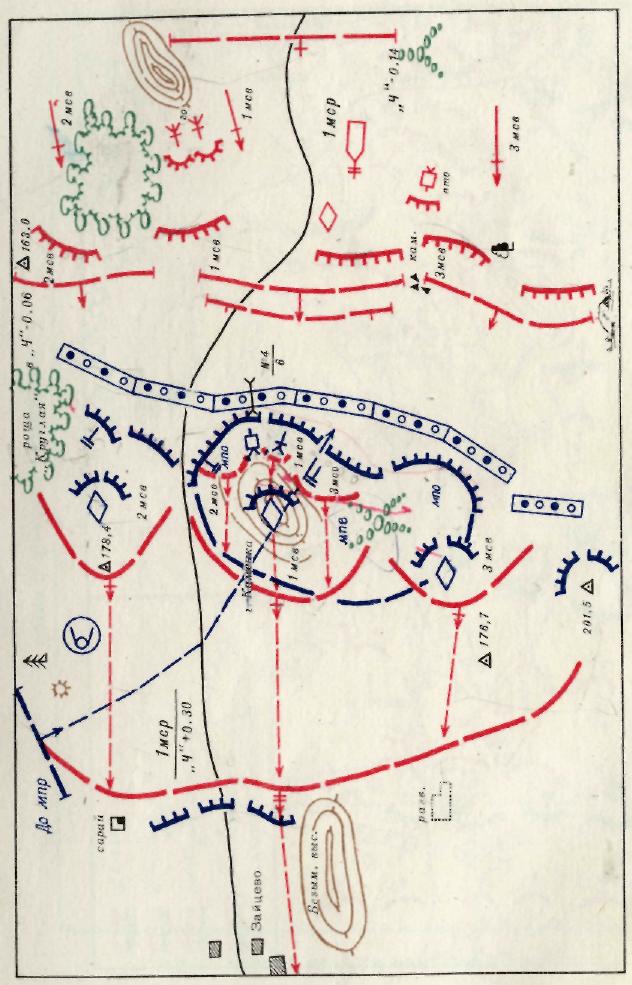 „Ч"-0.14
2 мсв
1 мсв
1 мср
3 мсв
пто
163,0
2 мсв
1 мсв
кам.
3 мсв
в „Ч"-0.06
роща
„Круглая"
№4
6
мпо
1 мсв
2 мсо
3 мсо
мпо
2 мсв
178,4
мпв
1 мсв
г. Каменка
3 мсв
176,7
201,5
1 мср
„Ч"+0.30
До мпр
сарай
разв.
Безым. выс.
Зайцево